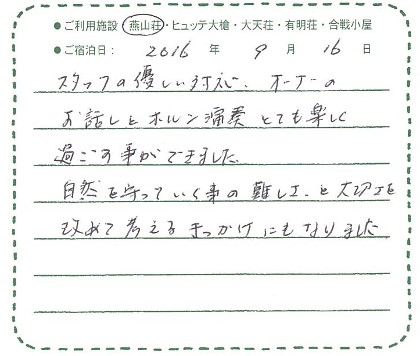 ●ご利用施設 燕山荘・ヒュッテ大槍・大天荘・有明荘・合戦小屋
●ご宿泊日： 2016 年 9 月 16 日
スタッフの優しい対応、オーナーの
お話しとホルン演奏とても楽しく
過ごす事ができました
自然を守っていく事の難しさ、と大切さを
改めて考えるきっかけにもなりました